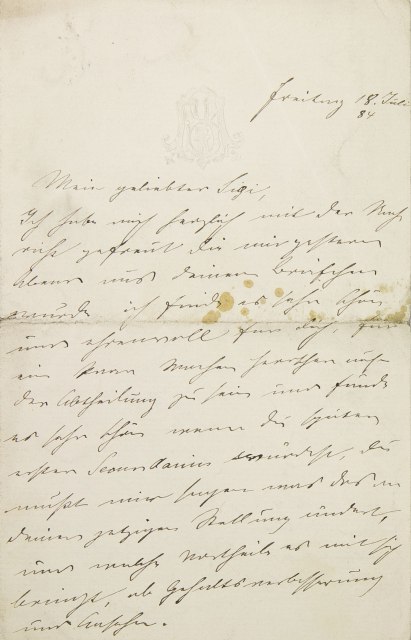 Freitag 18. Juli
84
Mein geliebter Sigi,
Ich habe mich herzlich mit der Nach
richt gefreut die mir gestern
Abend aus deinem Briefchen
wurde ich finde es sehr schön
und ehrenvoll für dich, für
ein paar Wochen Herrscher auf
der Abtheilung zu sein und fände
es sehr schön wenn du später
erster Secundarius würdest, du
mußt mir sagen was das an
deiner jetzigen Stellung ändert,
und welche Vortheile es mit sich
bringt, ob Gehaltsverbesserung
und Ansehn.